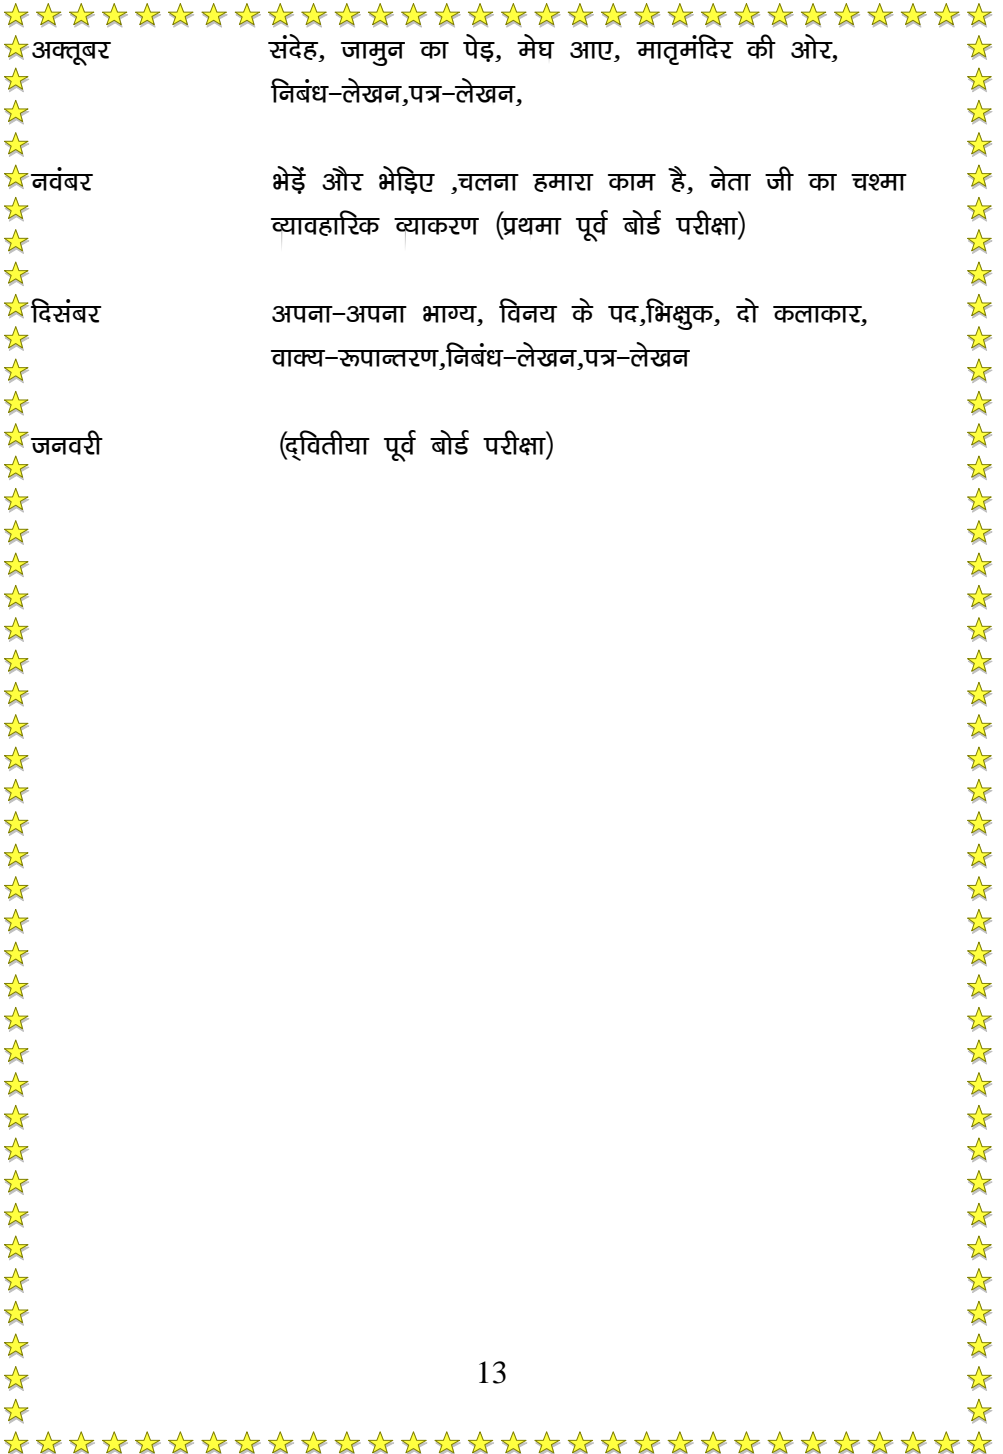 अक्तूबर संदेह, जामुन का पेड़, मेघ आए, मातृमंदिर की ओर,
निबंध-लेखन,पत्र-लेखन,
नवंबर भेड़ें और भेड़िए ,चलना हमारा काम है, नेता जी का चश्मा
व्यावहारिक व्याकरण (प्रथमा पूर्व बोर्ड परीक्षा)
दिसंबर अपना-अपना भाग्य, विनय के पद,भिक्षुक, दो कलाकार,
वाक्य-रूपान्तरण,निबंध-लेखन,पत्र-लेखन
जनवरी (द्वितीया पूर्व बोर्ड परीक्षा)
13